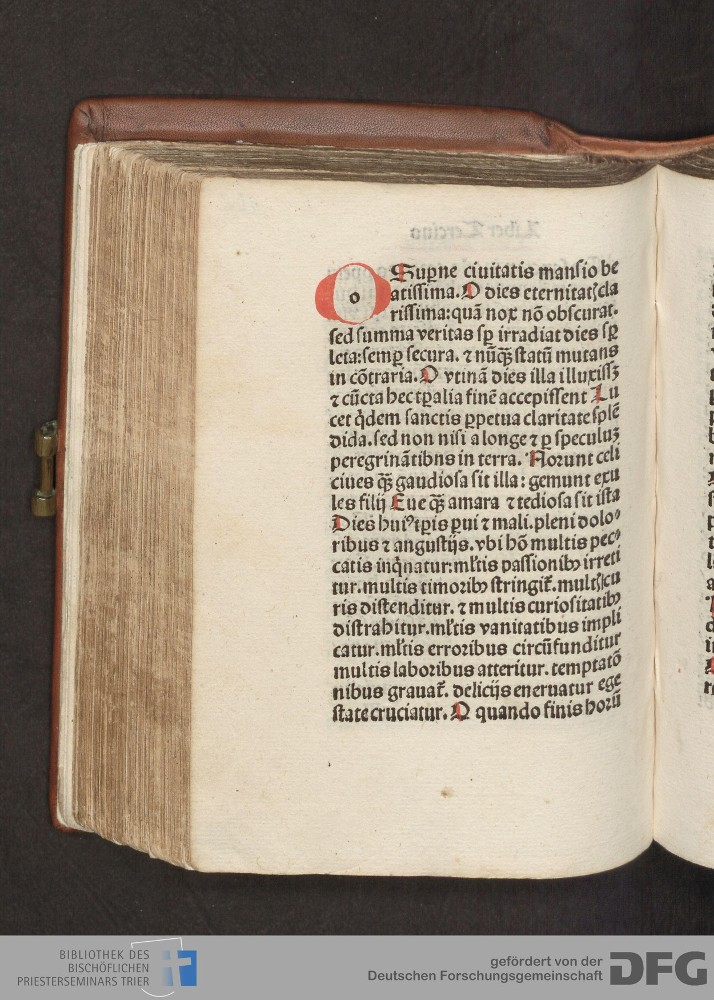 O Supne ciuitatis mansio be
atissima. O dies eternitatꝭ cla
rissima: quã nox nõ obscurat.
sed summa veritas sp̱ irradiat dies sp̱
leta: semp̱ secura. ⁊ nũqꝫ statũ mutans
in cõtraria. O vtinã dies illa illuxissꝫ
⁊ cũcta hec tp̱alia finẽ accepissent Lu
cet q̇dem sanctis ꝑpetua claritate splẽ
dida. sed non nisi a longe ⁊ ꝑ speculuꝫ
peregrinãtibns in terra. Norunt celi
ciues qꝫ gaudiosa sit illa: gemunt exu
les filij Eue qꝫ amara ⁊ tediosa sit ista
Dies huiꝰ tp̱is pui ⁊ mali. pleni doloꝰ
ribus ⁊ angustijs. vbi hõ multis pecꝰ
catis inq̇natur: ml̉tis passionibꝫ irreti
tur. multis timoribꝫ stringit᷑. multꝭ cu
ris distenditur. ⁊ multis curiositatibꝫ
distrahitur. ml̉tis vanitatibus impli
catur. ml̉tis erroribus circũfunditur
multis laboribus atteritur. temptatõ
nibus grauat᷑. delicijs eneruatur ege
state cruciatur. O quando finis horũ
BIBLIOTHEK DES
BISCHÖFLICHEN
PRIESTERSEMINARS TRIER
gefördert von der
Deutschen Forschungsgemeinschaft
DFG